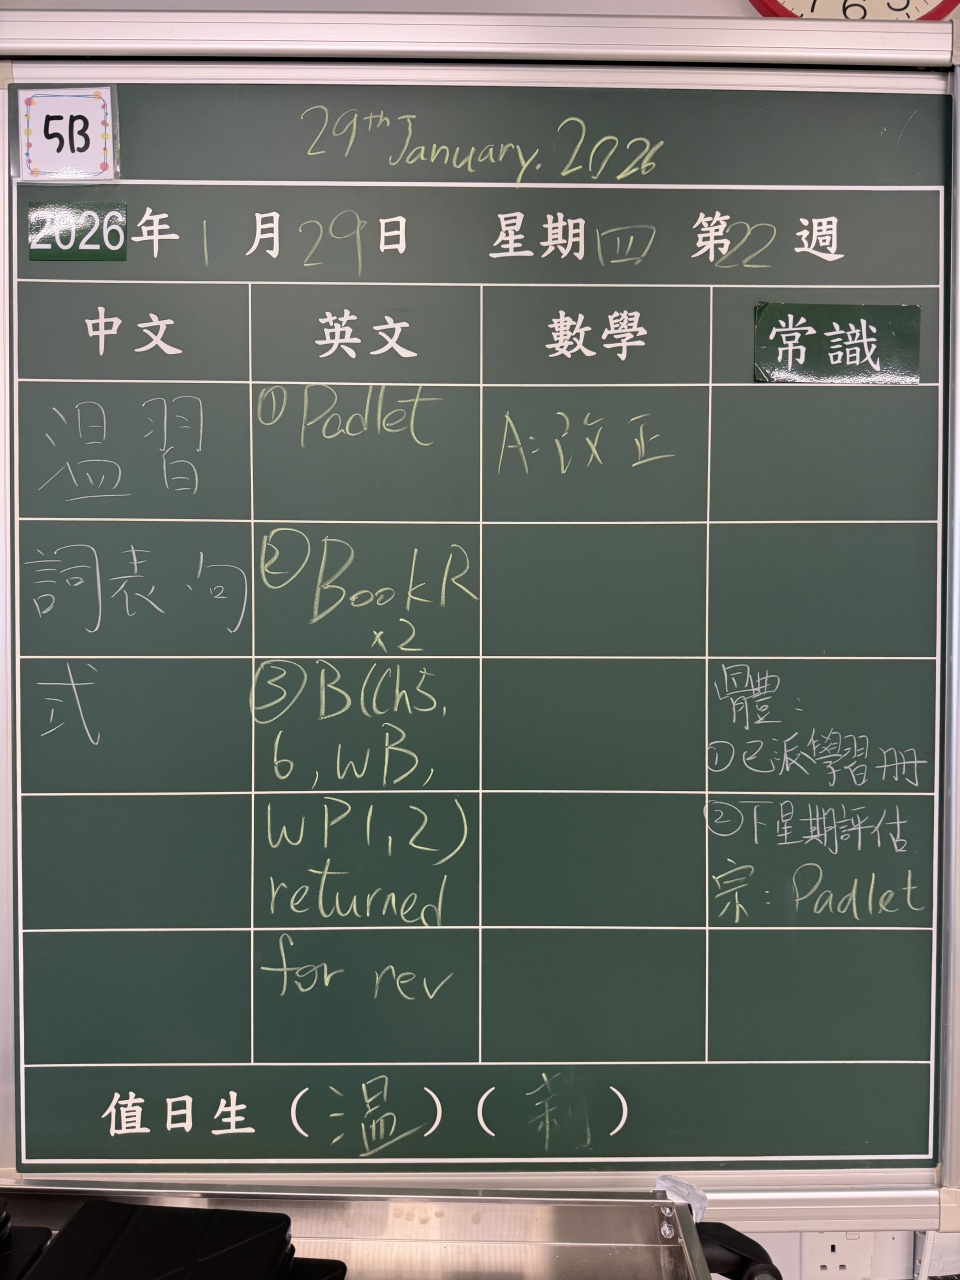 5B
29th January. 2026
2026年 1 月 29 日 星期 四 第 22 週
中文 英文 數學 常識
溫習
詞表、句
式
① Padlet
② Book R
x2
③ B(Ch5,
6, WB,
WP1,2)
returned
for rev
A: 改正
體:
①已派學習冊
②下星期評估
宗: Padlet
值日生（溫）（莉）
7 6 5